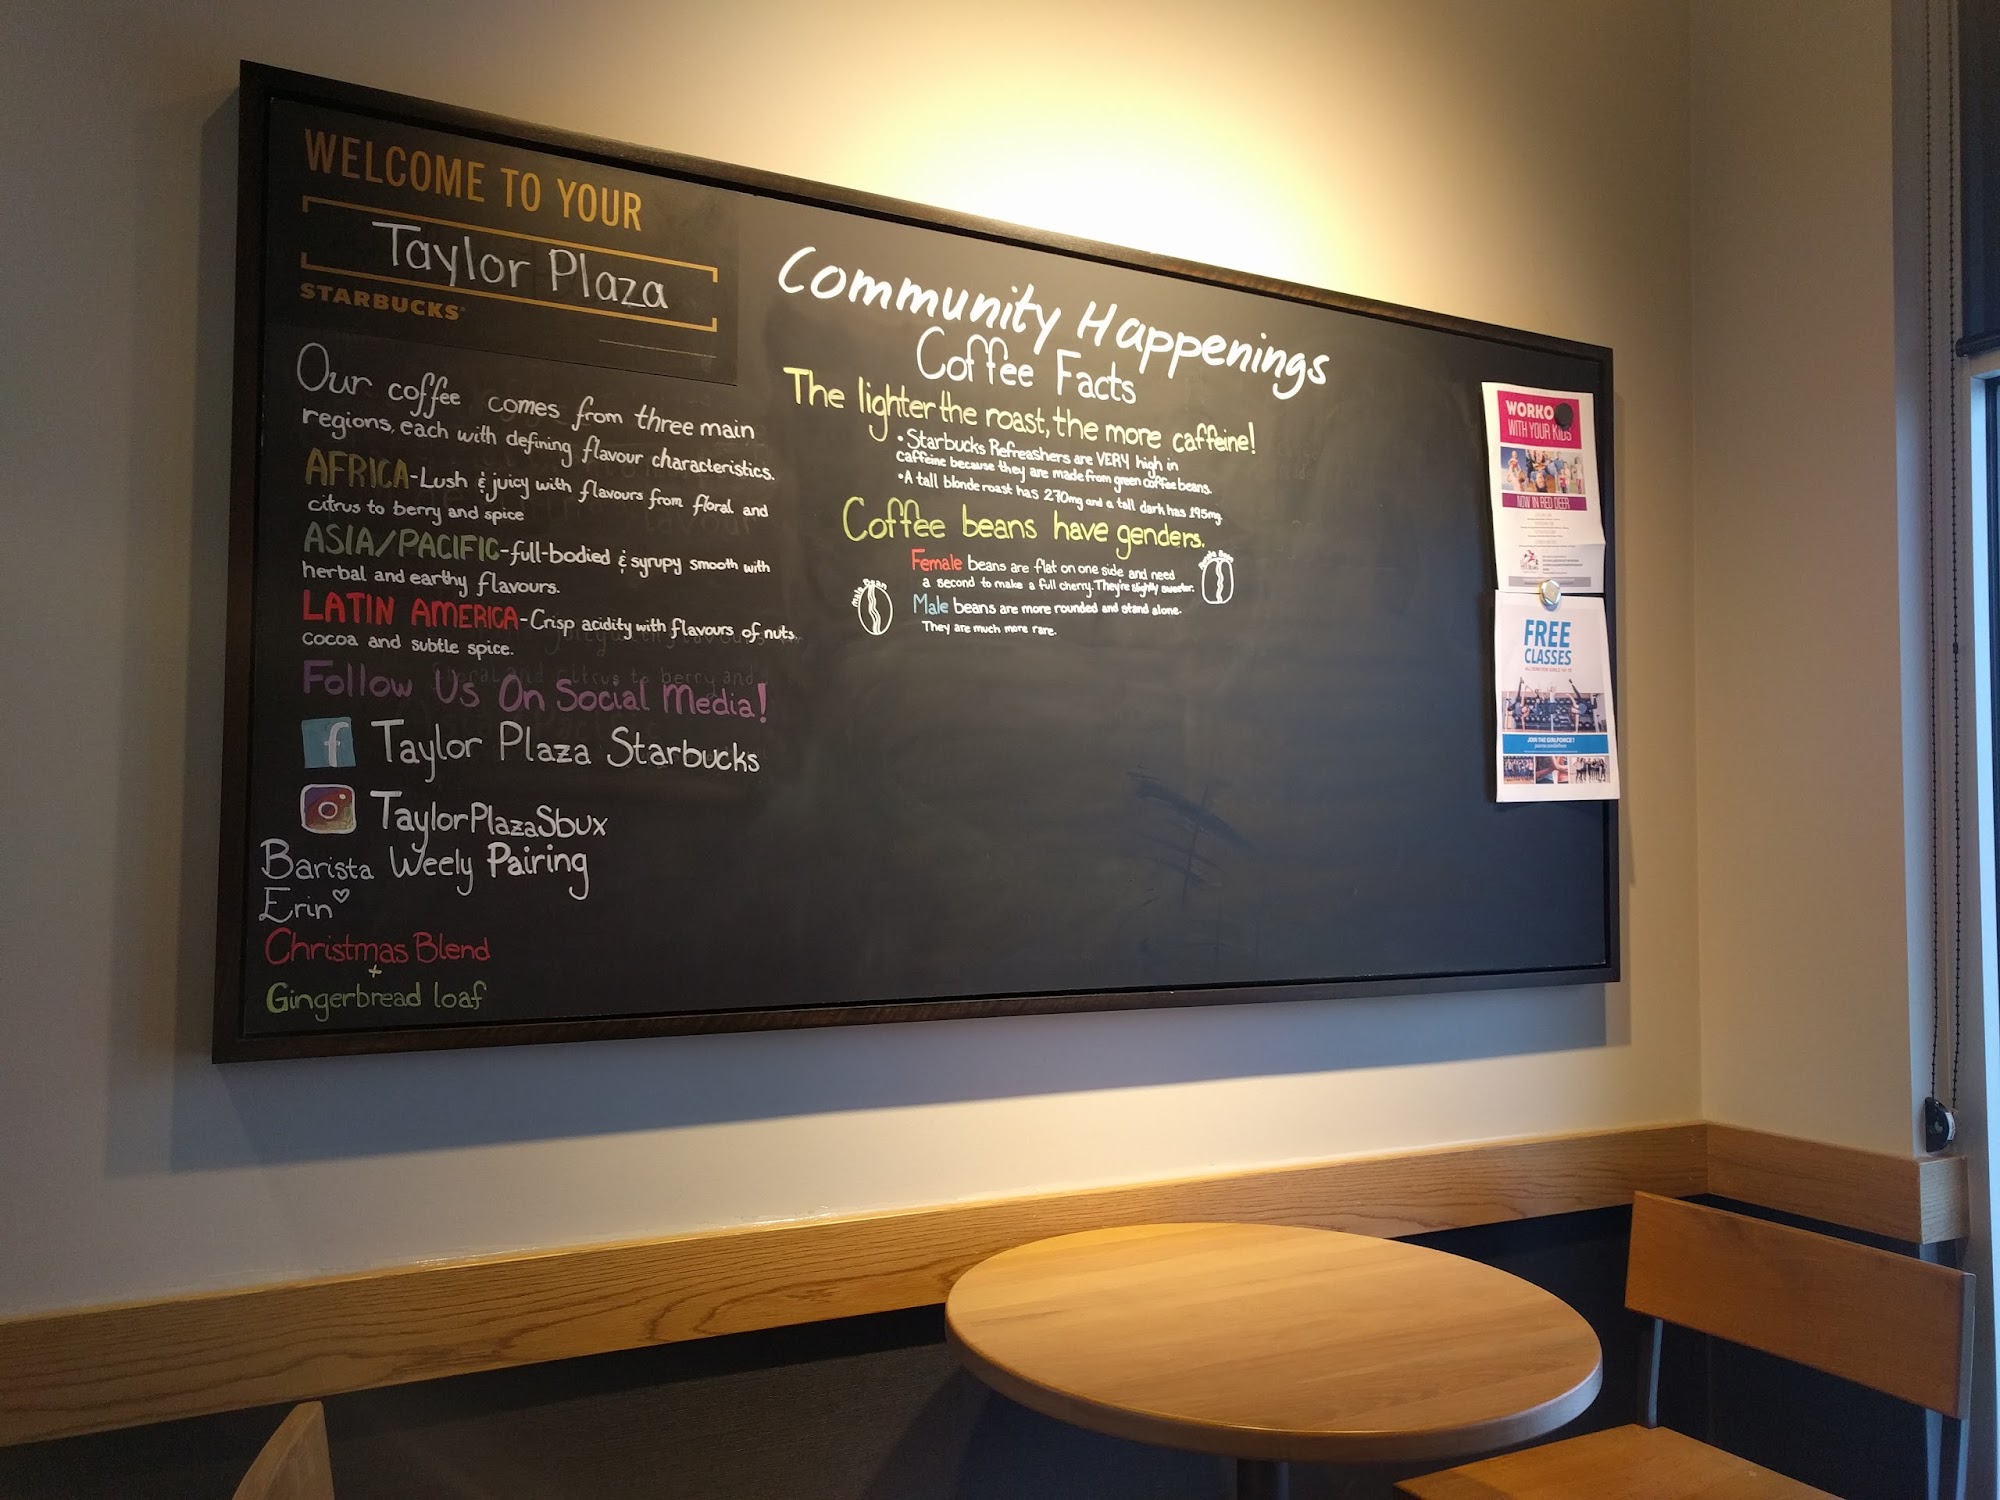 WELCOME TO YOUR
Taylor Plaza
STARBUCKS
Our coffee comes from three main
regions, each with defining flavour characteristics.
AFRICA-Lush & juicy with flavours from floral and
citrus to berry and spice
ASIA/PACIFIC-full-bodied & syrupy smooth with
herbal and earthy flavours.
LATIN AMERICA-Crisp acidity with flavours of nuts
cocoa and subtle spice.
Follow Us On Social Media!
f Taylor Plaza Starbucks
TaylorPlazaSbux
Barista Weely Pairing
Erin
Christmas Blend
+
Gingerbread loaf
Community Happenings
Coffee Facts
The lighter the roast, the more caffeine!
• Starbucks Refreashers are VERY high in
caffeine because they are made from green coffee beans.
• A tall blonde roast has 270mg and a tall dark has 195mg.
Coffee beans have genders.
Female beans are flat on one side and need
a second to make a full cherry. They're slightly sweeter.
Male beans are more rounded and stand alone.
They are much more rare.
male bean
WORKO
WITH YOUR KIDS
NOW IN RED DEER
FREE
CLASSES
JOIN THE GIRLFORCE?